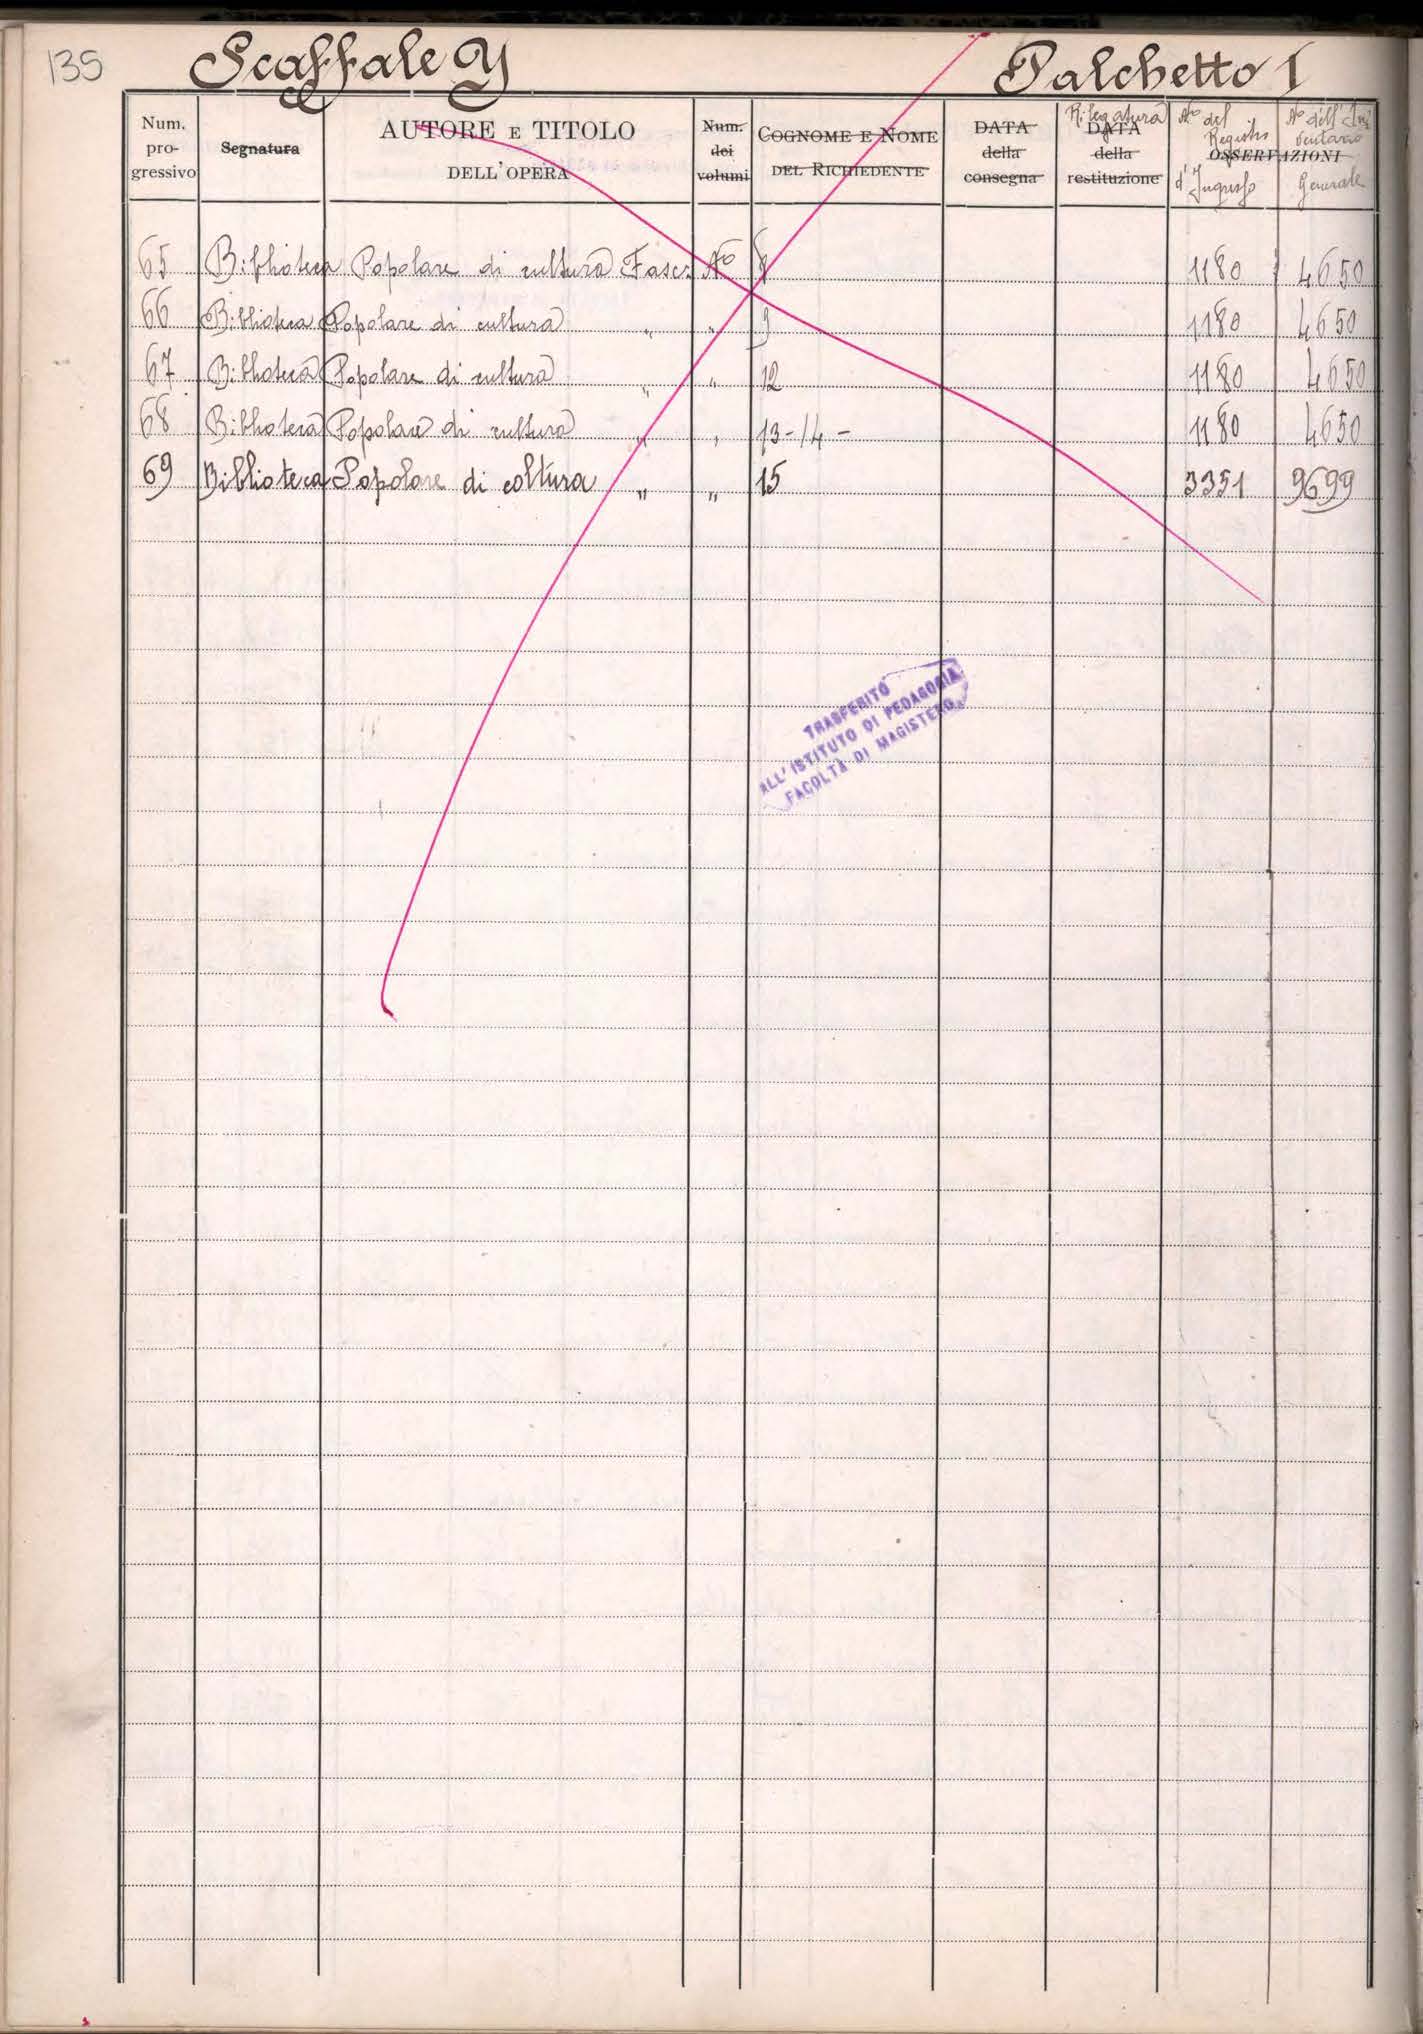 135 Scaffale Y Palchetto I
Num. progressivo Segnatura AUTORE E TITOLO DELL'OPERA Num. dei volumi COGNOME E NOME DEL RICHIEDENTE DATA della consegna Rilegatura DATA della restituzione OSSERVAZIONI No del Registro d'Ingresso No dell'Inventario Generale
65 Biblioteca Popolare di cultura Fasc. No 8 1180 4650
66 Biblioteca Popolare di cultura " " 9 1180 4650
67 Biblioteca Popolare di cultura " " 12 1180 4650
68 Biblioteca Popolare di cultura " " 13-14- 1180 4650
69 Biblioteca Popolare di coltura " " 15 3351 9699
TRASFERITO
ALL'ISTITUTO DI PEDAGOGIA
FACOLTÀ DI MAGISTERO